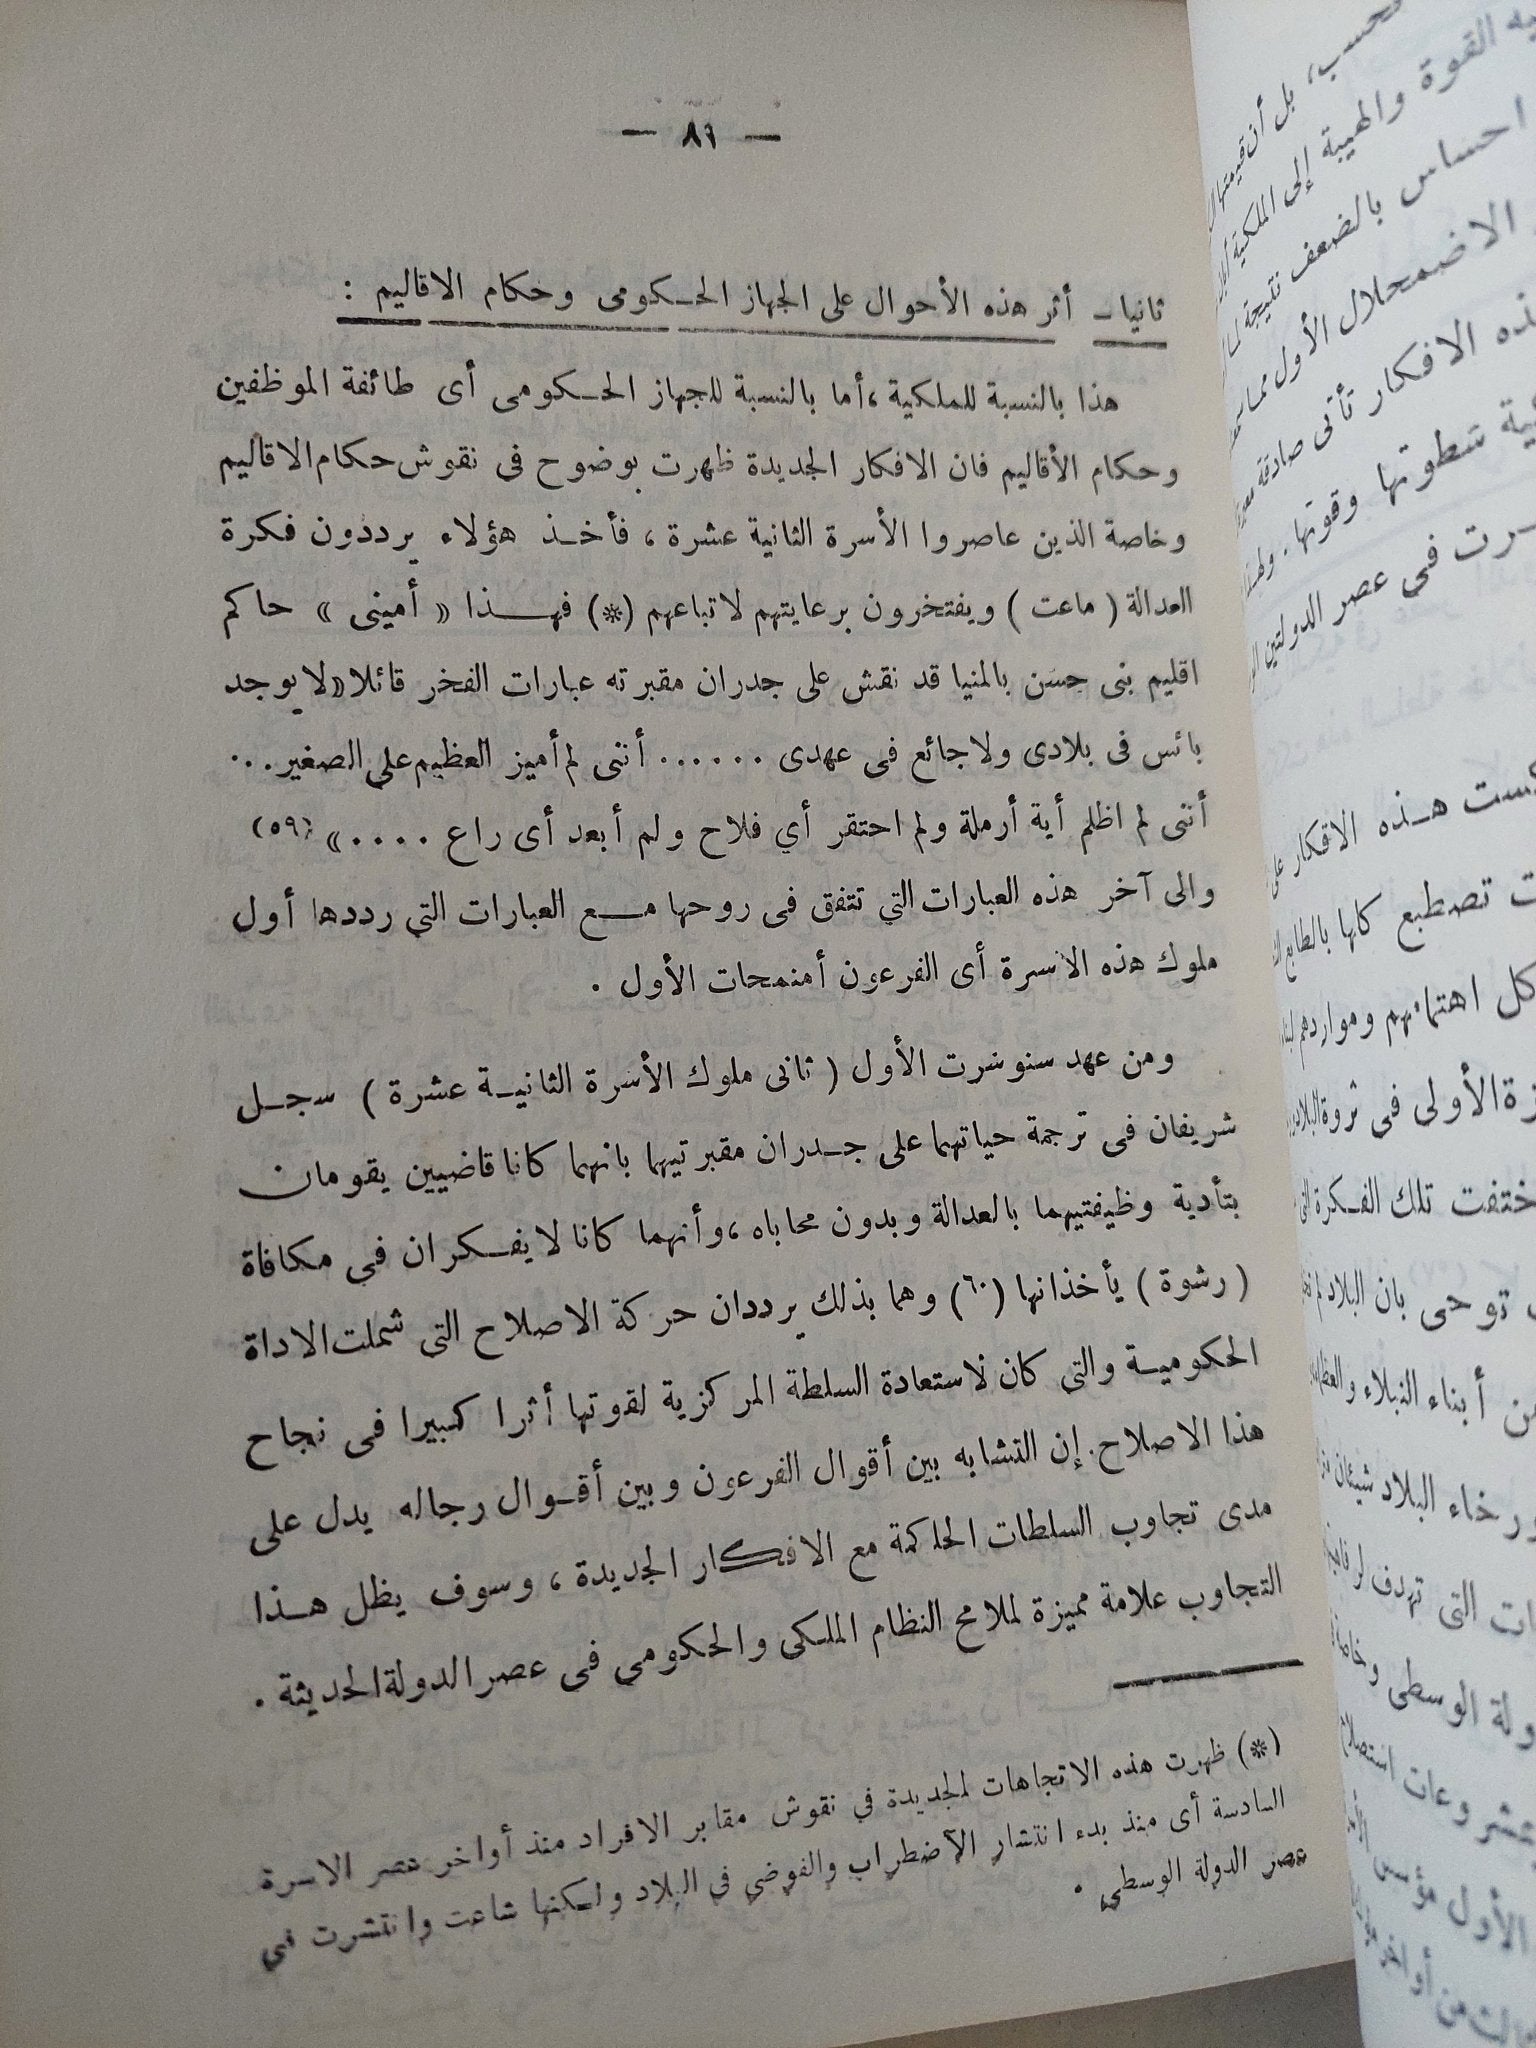 — ٨٦ —
ثانيا - أثر هذه الأحوال على الجهاز الحكومى وحكام الاقاليم :
هذا بالنسبة للملكية ، أما بالنسبة للجهاز الحكومى أى طائفة الموظفين
وحكام الأقاليم فان الافكار الجديدة ظهرت بوضوح فى نقوش حكام الاقاليم
وخاصة الذين عاصروا الأسرة الثانية عشرة ، فأخذ هؤلاء يرددون فكرة
العدالة ( ماعت ) ويفتخرون برعايتهم لاتباعهم (*) فهذا « أمينى » حاكم
اقليم بنى حسن بالمنيا قد نقش على جدران مقبرته عبارات الفخر قائلا « لا يوجد
بائس فى بلادى ولا جائع فى عهدى ...... أننى لم أميز العظيم على الصغير ...
أننى لم اظلم أية أرملة ولم احتقر أي فلاح ولم أبعد أى راع .... » (٥٩)
والى آخر هذه العبارات التي تتفق فى روحها مع العبارات التي رددها أول
ملوك هذه الاسرة أى الفرعون أمنمحات الأول .
ومن عهد سنوسرت الأول ( ثانى ملوك الأسرة الثانية عشرة ) سجل
شريفان فى ترجمة حياتهما على جدران مقبرتيهما بانهما كانا قاضيين يقومان
بتأدية وظيفتيهما بالعدالة وبدون محاباه ، وأنهما كانا لا يفكران فى مكافاة
( رشوة ) يأخذانها (٦٠) وهما بذلك يرددان حركة الاصلاح التى شملت الاداة
الحكومية والتي كان لاستعادة السلطة المركزية لقوتها أثرا كبيرا فى نجاح
هذا الاصلاح . إن التشابه بين أقوال الفرعون وبين أقوال رجاله يدل على
مدى تجاوب السلطات الحاكمة مع الافكار الجديدة ، وسوف يظل هذا
التجاوب علامة مميزة لملامح النظام الملكى والحكومى فى عصر الدولة الحديثة .
(*) ظهرت هذه الاتجاهات الجديدة في نقوش مقابر الافراد منذ أواخر عصر الاسرة
السادسة أى منذ بدء انتشار الاضطراب والفوضى في البلاد ولكنها شاعت وانتشرت فى
عصر الدولة الوسطى .
فحسب ، بل أن قيمتها
القوة والهيبة إلى الملكية
احساس بالضعف نتيجة
الاضمحلال الأول
الافكار تأتى صادقة
سطوتها وقوتها . ولهذا
فى عصر الدولتين
هذه الافكار
تصطبع كلها بالطابع
كل اهتمامهم ومواردهم
الأولى فى ثروة البلاد
تلك الفكرة
توحى بان البلاد
أبناء النبلاء
ورخاء البلاد
التى تهدف
الوسطى
الأول مؤسس